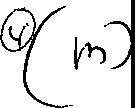 ④ (m)